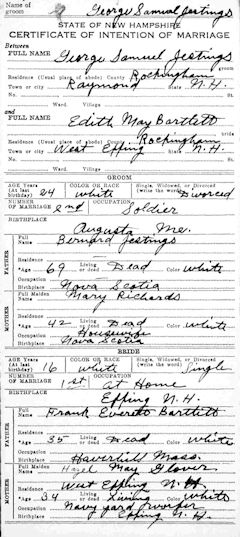 Name of
groom George Samuel Jestings
STATE OF NEW HAMPSHIRE
CERTIFICATE OF INTENTION OF MARRIAGE
Between
FULL NAME
George Samuel Jestings
groom
Residence (Usual place of abode) County Rockingham
Town or city Raymond State N.H.
No. St.
Ward. Village
and
FULL NAME
Edith May Bartlett
Residence (Usual place of abode) County Rockingham
Town or city West Epping State N.H.
No. St.
Ward. Village
GROOM
AGE Years (At last birthday) 24 COLOR OR RACE white Single, Widowed, or Divorced Divorced
NUMBER OF MARRIAGE 2nd OCCUPATION Soldier
BIRTHPLACE
Augusta Me.
FATHER
Full Name Bernard Jestings
Age 69 Living or dead Dead Color white
Occupation
Birthplace Nova Scotia
MOTHER
Full Maiden Name Mary Richards
Age 42 Living or dead Dead Color white
Occupation Housewife
Birthplace Nova Scotia
BRIDE
AGE Years (At last birthday) 16 COLOR OR RACE white Single, Widowed, or Divorced Single
NUMBER OF MARRIAGE 1st OCCUPATION At Home
BIRTHPLACE
Epping N.H.
FATHER
Full Name Frank Everett Bartlett
Age 35 Living or dead Dead Color white
Occupation
Birthplace Haverhill Mass.
MOTHER
Full Maiden Name Hazel May Glover
West Epping N.H.
Age 34 Living or dead Living Color white
Occupation Navy yard worker
Birthplace Epping N.H.